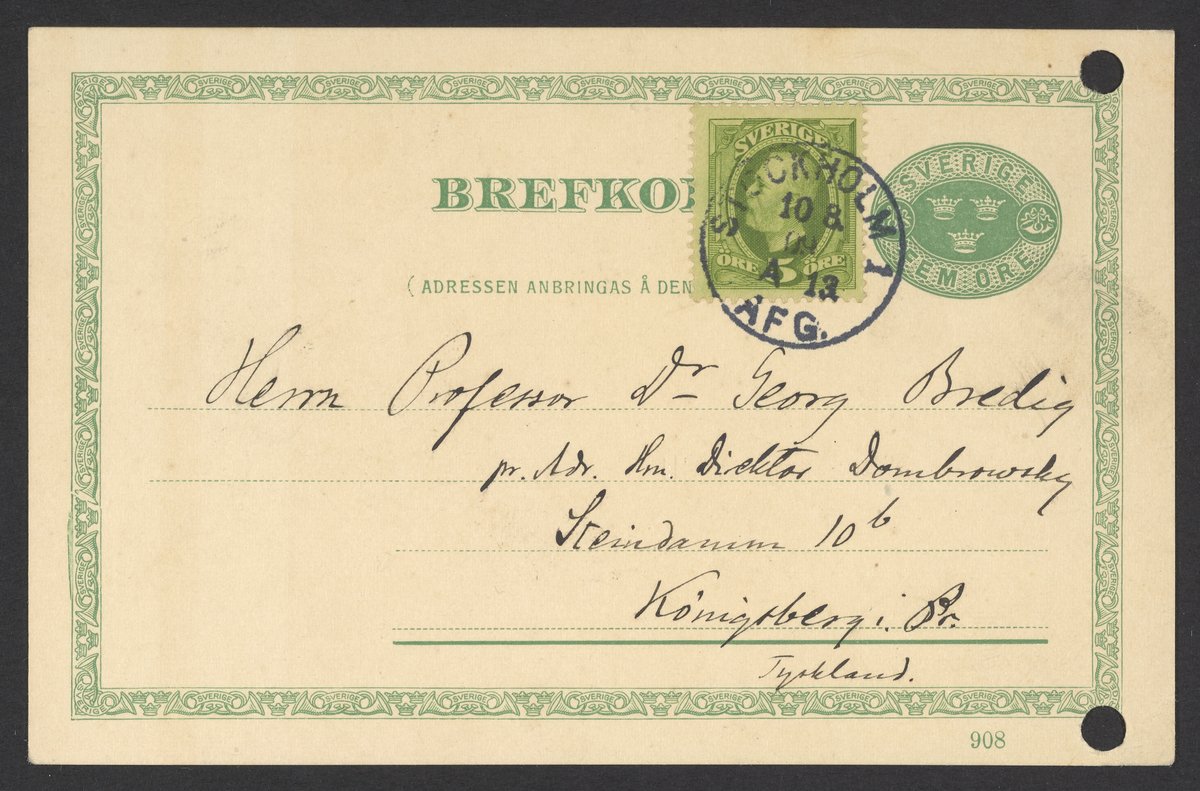 BREFKOR
SVERIGE
FEM ÖRE
SVERIGE
ÖRE 5 ÖRE
STOCKHOLM 1
10 8
09
A 13
AFG.
(ADRESSEN ANBRINGAS Å DEN
Herrn Professor Dr Georg Bredig
pr. Adr. Hrn. Direktor Dombrowsky
Steindamm 10b
Königsberg i. Pr.
Tyskland.
908